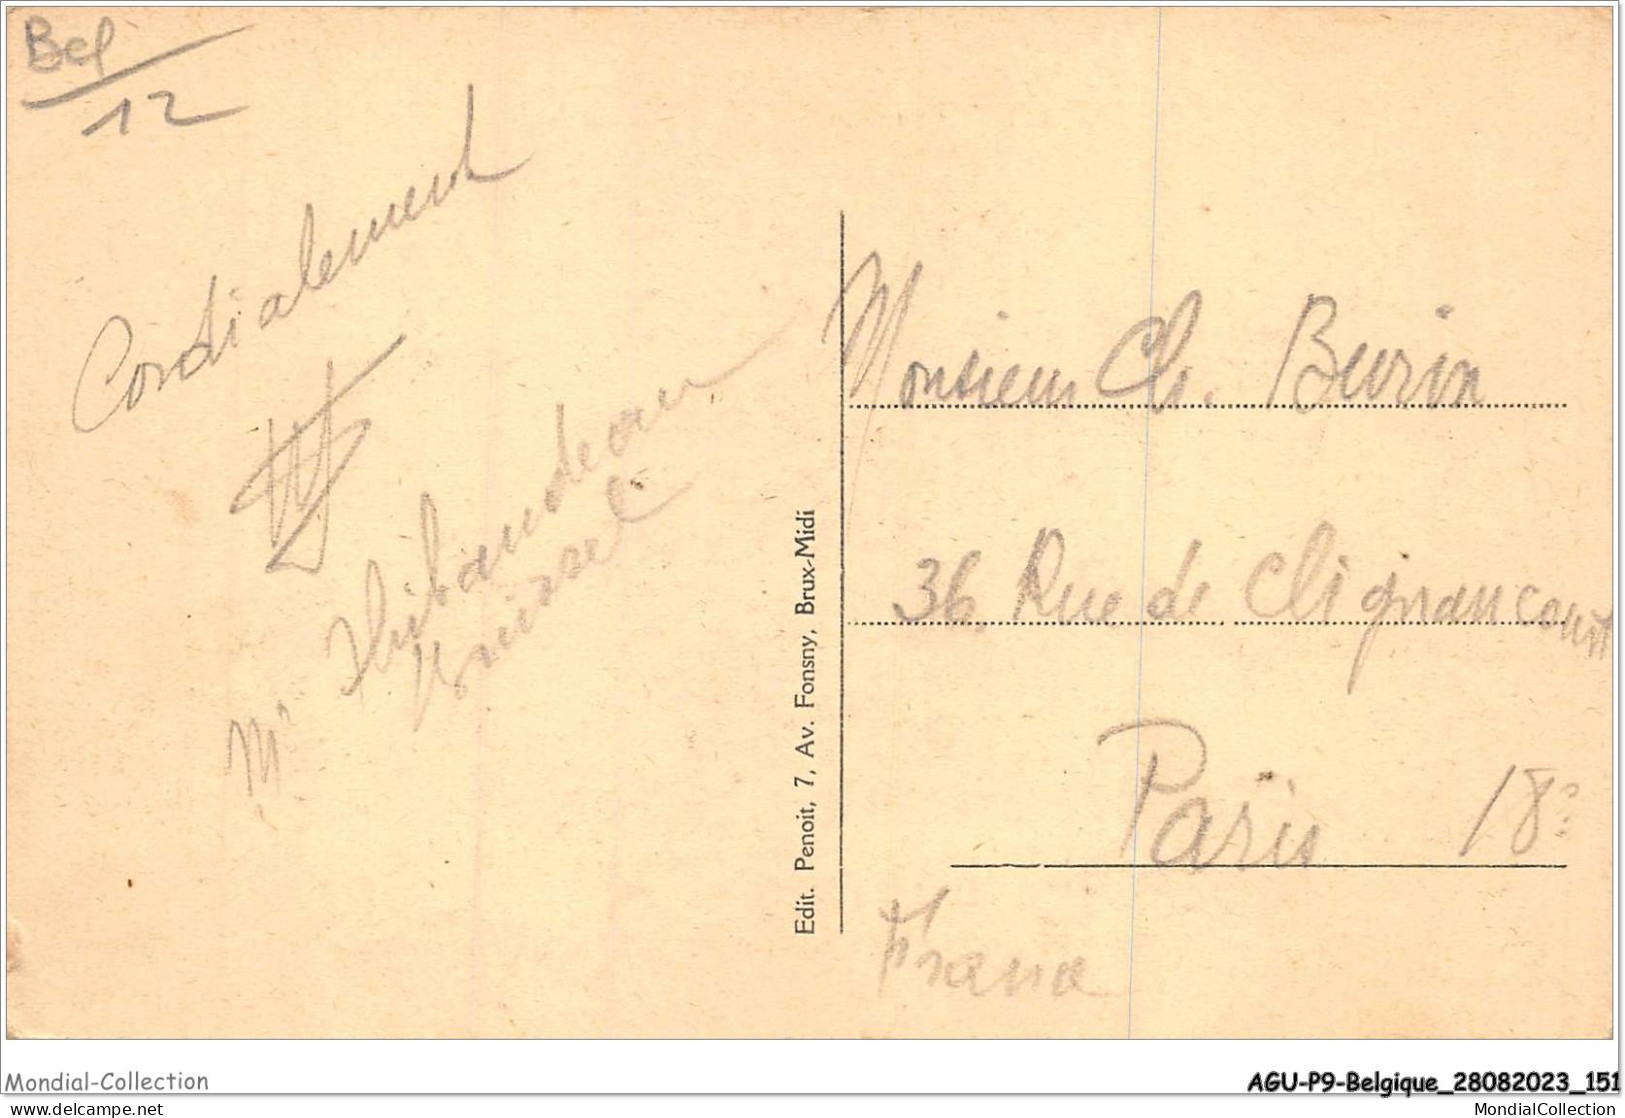 Bel
12
Cordialement
Mr Thibaudeau
Bruxsel
Edit. Penoit, 7, Av. Fonsny, Brux-Midi
Monsieur Ch. Burin
36, Rue de Clignancourt
Paris 18e
France
Mondial-Collection
AGU-P9-Belgique_28082023_151
delcampe.net
MondialCollection